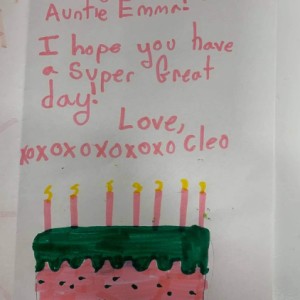 Auntie Emma!
I hope you have
a Super Great
day!
Love,
xoxoxoxoxoxo Cleo